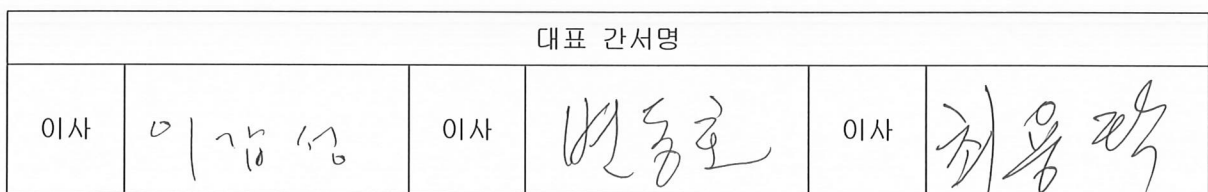 대표 간서명
이사 이삼성 이사 변동호 이사 최용락